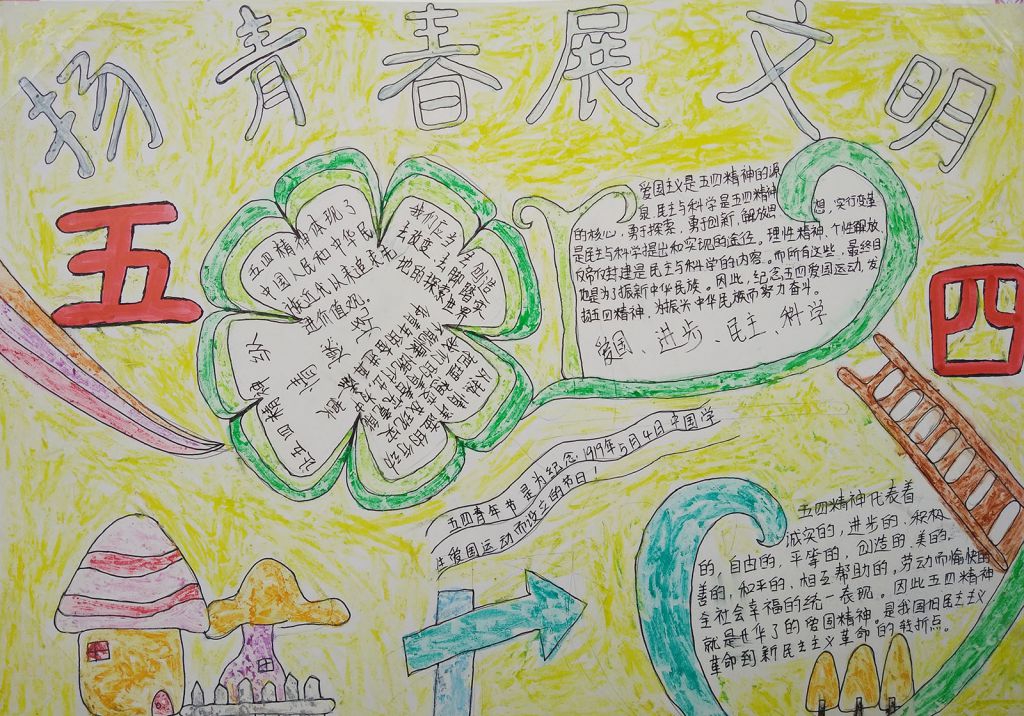 扬青春展文明
五
四
五四精神体现了
中国人民和中华民
族近代以来追求先
进价值观。
我们应当
去改变,去脚踏实
地的探索世界
让五四精神
爱国主义是五四精神的源
泉,民主与科学是五四精神
的核心,勇于探索、勇于创新、解放思想,实行变革
是民主与科学提出和实现的途径。理性精神、个性解放
反帝反封建是民主与科学的内容。而所有这些,最终目
也是为了振新中华民族。因此,纪念五四爱国运动,发
扬五四精神,为振兴中华民族而努力奋斗。
爱国、进步、民主、科学
五四青年节是为纪念1919年5月4日中国学
生爱国运动而设立的节日!
五四精神代表着
诚实的,进步的,积极
的,自由的,平等的,创造的,美的,
善的,和平的,相互帮助的,劳动而愉快的
全社会幸福的统一表现。因此五四精神
就是升华了的爱国精神。是我国旧民主主义
革命到新民主主义革命的转折点。